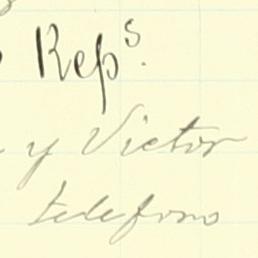 Reps.
y Victor
telefono